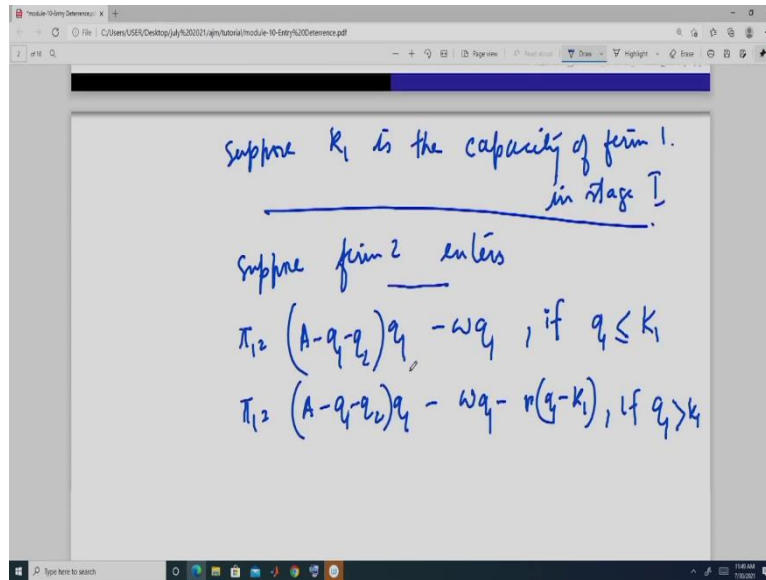 *module-10-Entry Deterrence.pdf
File C:/Users/USER/Desktop/july%202021/ajm/tutorial/module-10-Entry%20Deterrence.pdf
2 of 18 Page view Read aloud Draw Highlight Erase
Suppose K₁ is the capacity of firm 1.
in stage I
Suppose firm 2 enters
π₁ = (A-q₁-q₂)q₁ - wq₁ , if q₁ ≤ K₁
π₁ = (A-q₁-q₂)q₁ - wq₁ - r(q₁-K₁), if q₁ > K₁
Type here to search
11:49 AM
7/30/2021